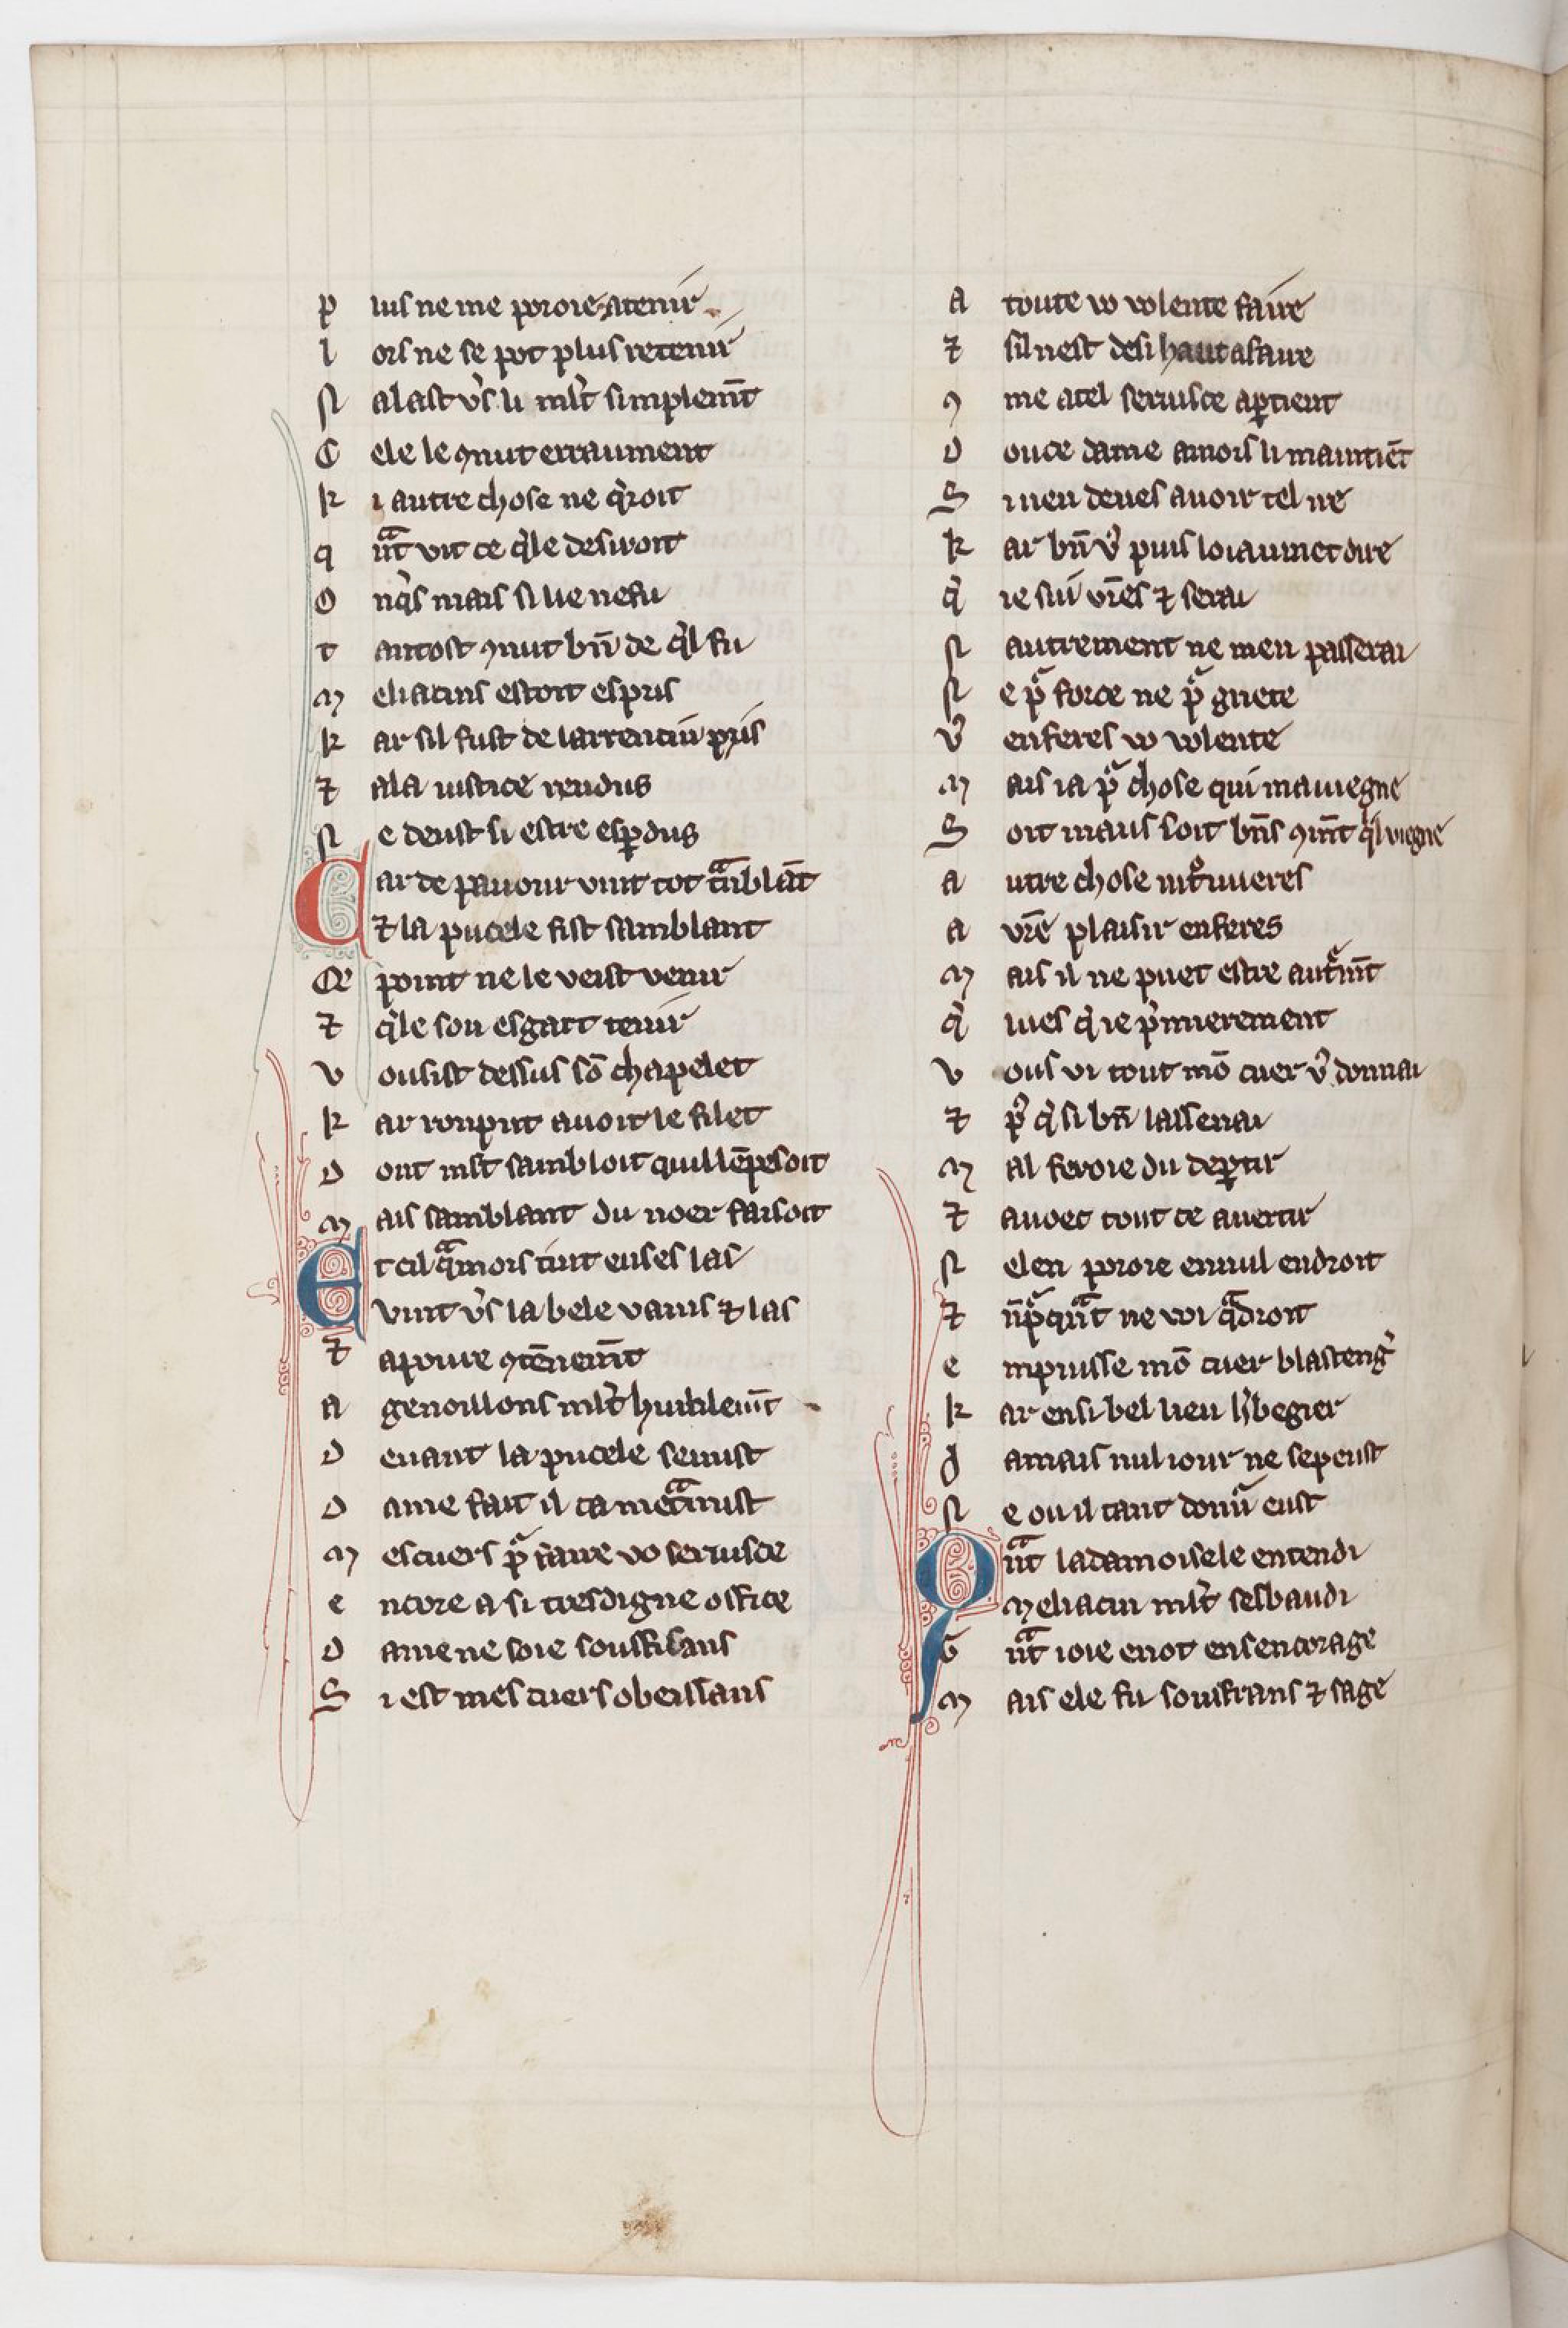 p lus ne me poroie atenir
l ors ne se pot plus retenir
N alast v̾s li ml̾t simplem̄t
C ele le ꝯnut erraument
k i autre chose ne q̾roit
q ͣnt vit ce q̾le desiroit
O nq̾s mais si lie ne fu
t antost ꝯnut bn̄ de q̾l fu
M eliacins estoit espris
k ar sil fust de larrencin pris
⁊ a la iustice rendus
N e deust si estre esꝑdus
Car de paiour vint tot tͣmblāt
⁊ la pucele fist samblant
Qe point ne le veist venir
⁊ q̾le son esgart tenir
v ousist dessus sō chapelet
k ar ronput auoit le filet
D ont mlt sambloit quil lē pesoit
M ais samblant du noer faisoit
Et cil qͣmors tint en ses las
Vint v̾s la bele vains ⁊ las
⁊ a poure ꝯtēnem̄t
a genoillons ml̾t humblem̄t
D euant la pucele se mist
D ame fait il ca me tͣmist
M es cuers pͬ faire vo seruisce
e ncore a si tres digne office
D ame ne soie souffisans
S i est mes cuers obeissans
A toute vo volente faire
⁊ sil nest de si haut afaire
ꝯ me a tel seruisce aꝑtient
D ouce dame amors li maintiēt
S i men deues auoir tel ne
k ar bn̄ v̾ puis loiaumet dire
q̾ ie sui vr̄es ⁊ serai
N autrement ne men passerai
N e pͬ force ne pͬ griete
v̾ en feres vo volente
M ais ia pͬ chose qui mauiegne
S oit maus soit bn̄s ꝯm̄t q̾l viegne
a utre chose ni tͦuueres
a vr̄e plaisir en feres
M ais il ne puet estre autͬm̄t
q̾ lues q̾ ie p̾mierement
v ous vi tout mō cuer v̾ donnai
⁊ pͬ q̾ si bn̄ lassenai
M al feroie du deꝑtir
⁊ auoec tout ce auertir
N elen poroie en nul endroit
⁊ n̄pͬqͣnt ne voi qͣ droit
e mpruisse mō cuer blasteng̾
k ar en si bel lieu h̾begier
J amais nul iour ne se peust
N e ou il tant donn̾ eust
Qͣnt la damoisele entendi
Meliacin ml̾t sesbaudi
G ͣnt ioie en ot en sen corage
M ais ele fu soufrans ⁊ sage